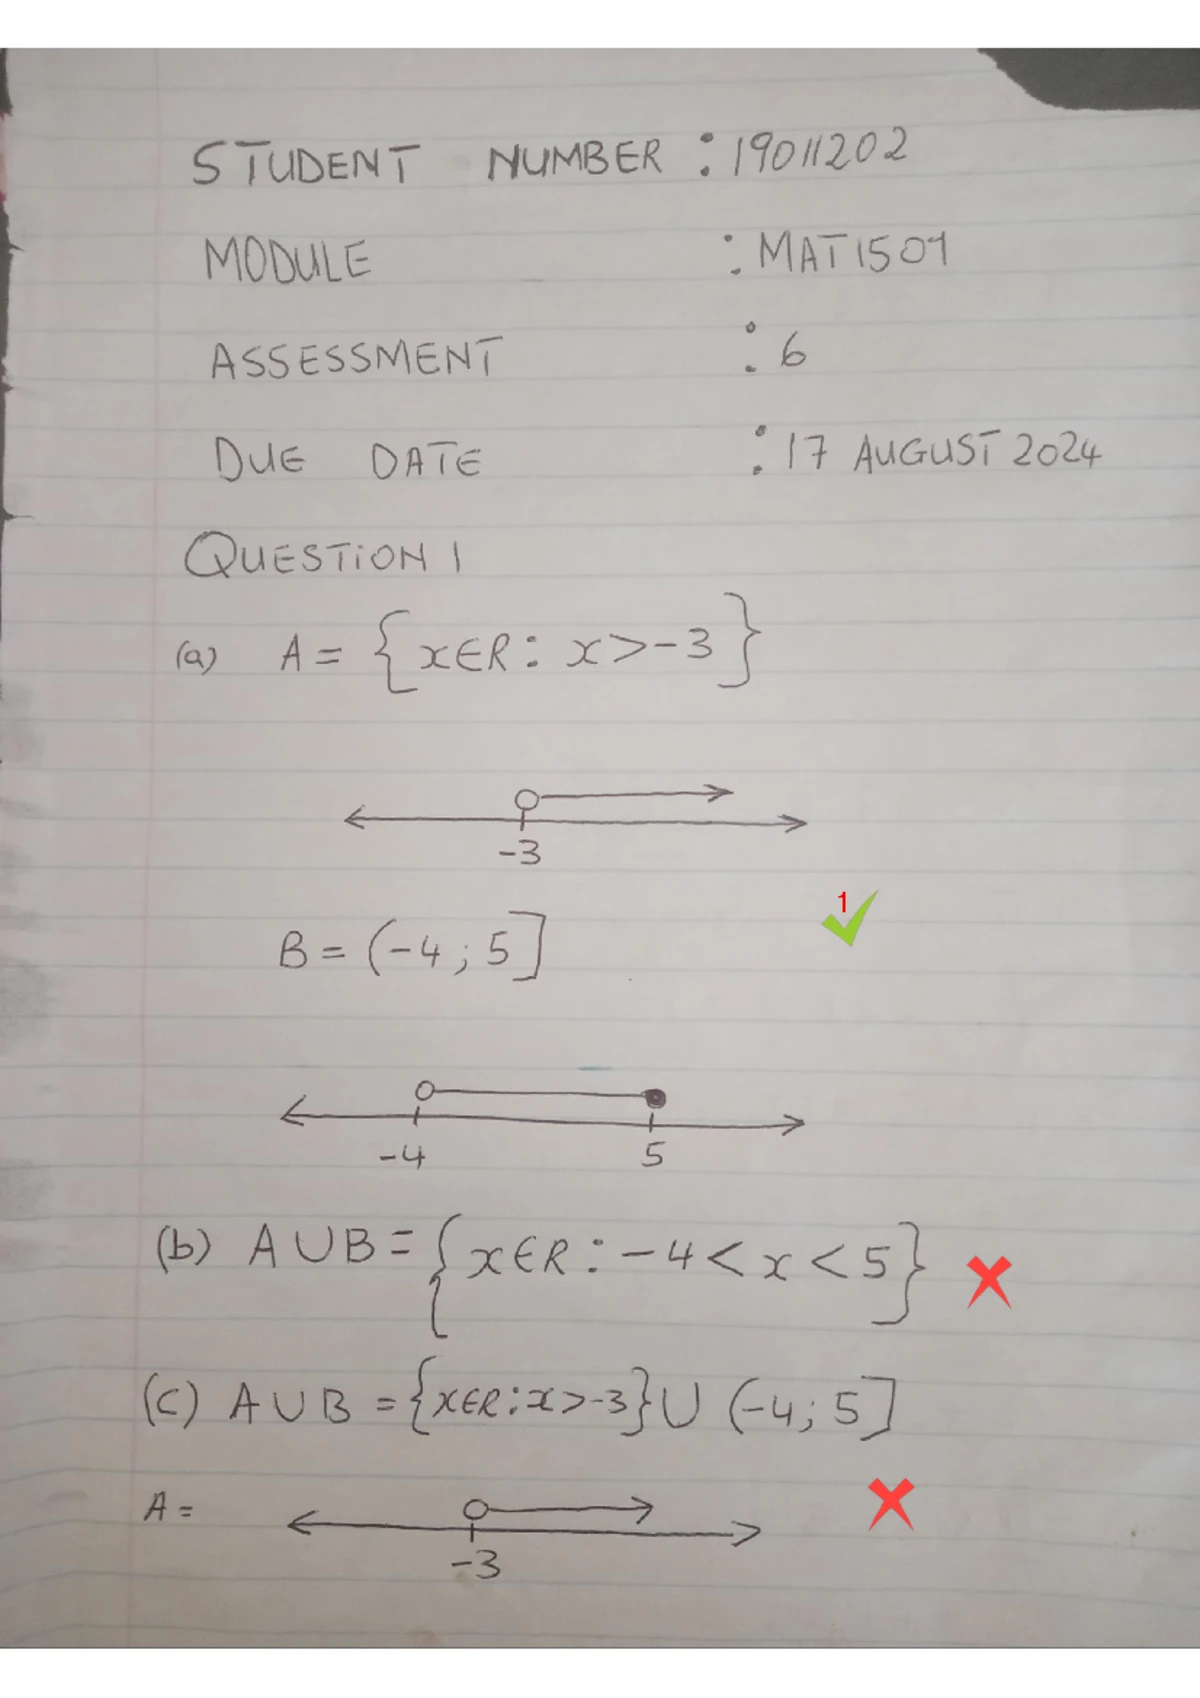 STUDENT NUMBER : 19011202
MODULE : MAT1501
ASSESSMENT : 6
DUE DATE : 17 AUGUST 2024
QUESTION 1
(a) A = {x∈R : x > -3}
-3
1
B = (-4 ; 5]
-4 5
(b) A ∪ B = {x∈R : -4 < x < 5}
(c) A ∪ B = {x∈R : x > -3} ∪ (-4 ; 5]
A =
-3